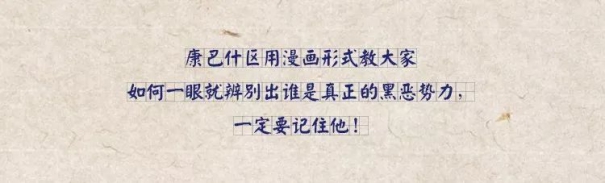 康巴什区用漫画形式教大家
如何一眼就辨别出谁是真正的黑恶势力，
一定要记住他！